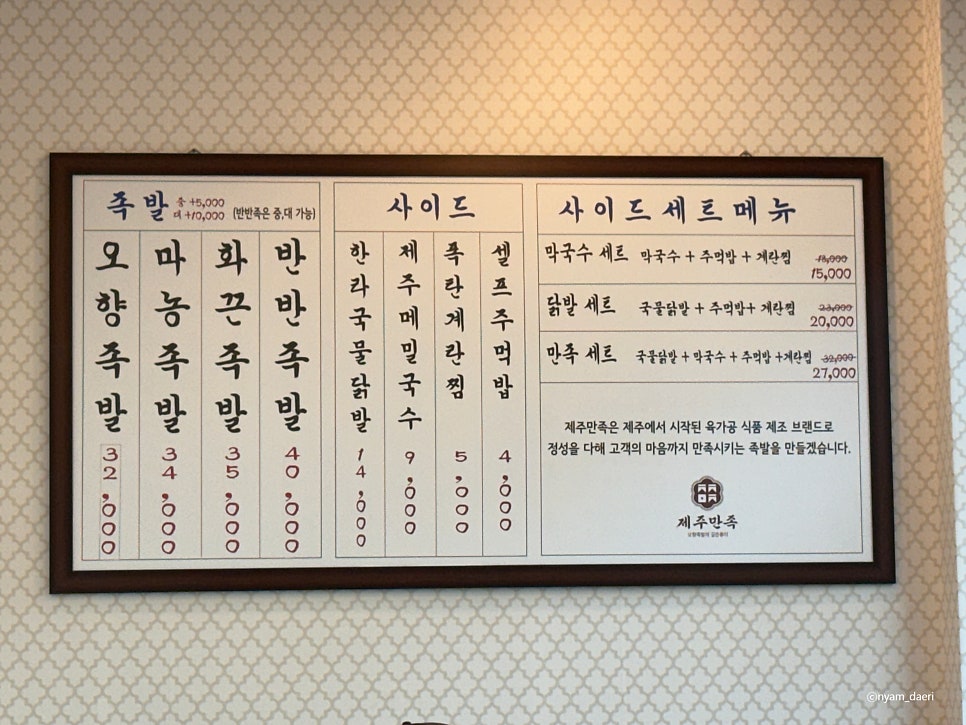 족발 중 +5,000
대 +10,000 (반반족은 중,대 가능)
오향족발 32,000
마농족발 34,000
화끈족발 35,000
반반족발 40,000
사이드
한라국물닭발 14,000
제주메밀국수 9,000
폭탄계란찜 5,000
셀프주먹밥 4,000
사이드세트메뉴
막국수 세트 막국수 + 주먹밥 + 계란찜 18,000
15,000
닭발 세트 국물닭발 + 주먹밥+ 계란찜 23,000
20,000
만족 세트 국물닭발 + 막국수 + 주먹밥 +계란찜 32,000
27,000
제주만족은 제주에서 시작된 육가공 식품 제조 브랜드로
정성을 다해 고객의 마음까지 만족시키는 족발을 만들겠습니다.
제주만족
©nyam_daeri